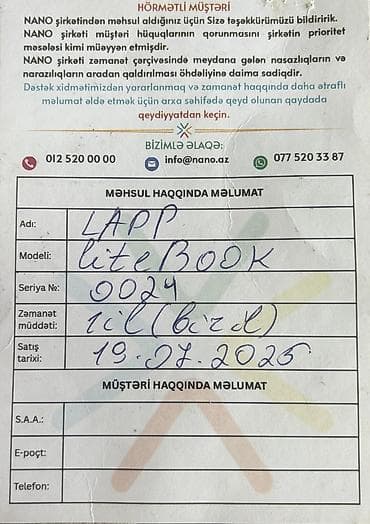 HÖRMƏTLİ MÜŞTƏRİ
NANO şirkətindən məhsul aldığınız üçün Sizə təşəkkürümüzü bildiririk.
NANO şirkəti müştəri hüquqlarının qorunmasını şirkətin prioritet
məsələsi kimi müəyyən etmişdir.
NANO şirkəti zəmanət çərçivəsində meydana gələn nasazlıqların və
narazılıqların aradan qaldırılması öhdəliyinə daima sadiqdir.
Dəstək xidmətimizdən yararlanmaq və zəmanət haqqında daha ətraflı
məlumat əldə etmək üçün arxa səhifədə qeyd olunan qaydada
qeydiyyatdan keçin.
BİZİMLƏ ƏLAQƏ:
012 520 00 00 info@nano.az 077 520 33 87
MƏHSUL HAQQINDA MƏLUMAT
Adı: LAPP
Modeli: liteBOOK
Seriya №: 0024
Zəmanət müddəti: 1 il (bir il)
Satış tarixi: 19.07.2025
MÜŞTƏRİ HAQQINDA MƏLUMAT
S.A.A.:
E-poçt:
Telefon: